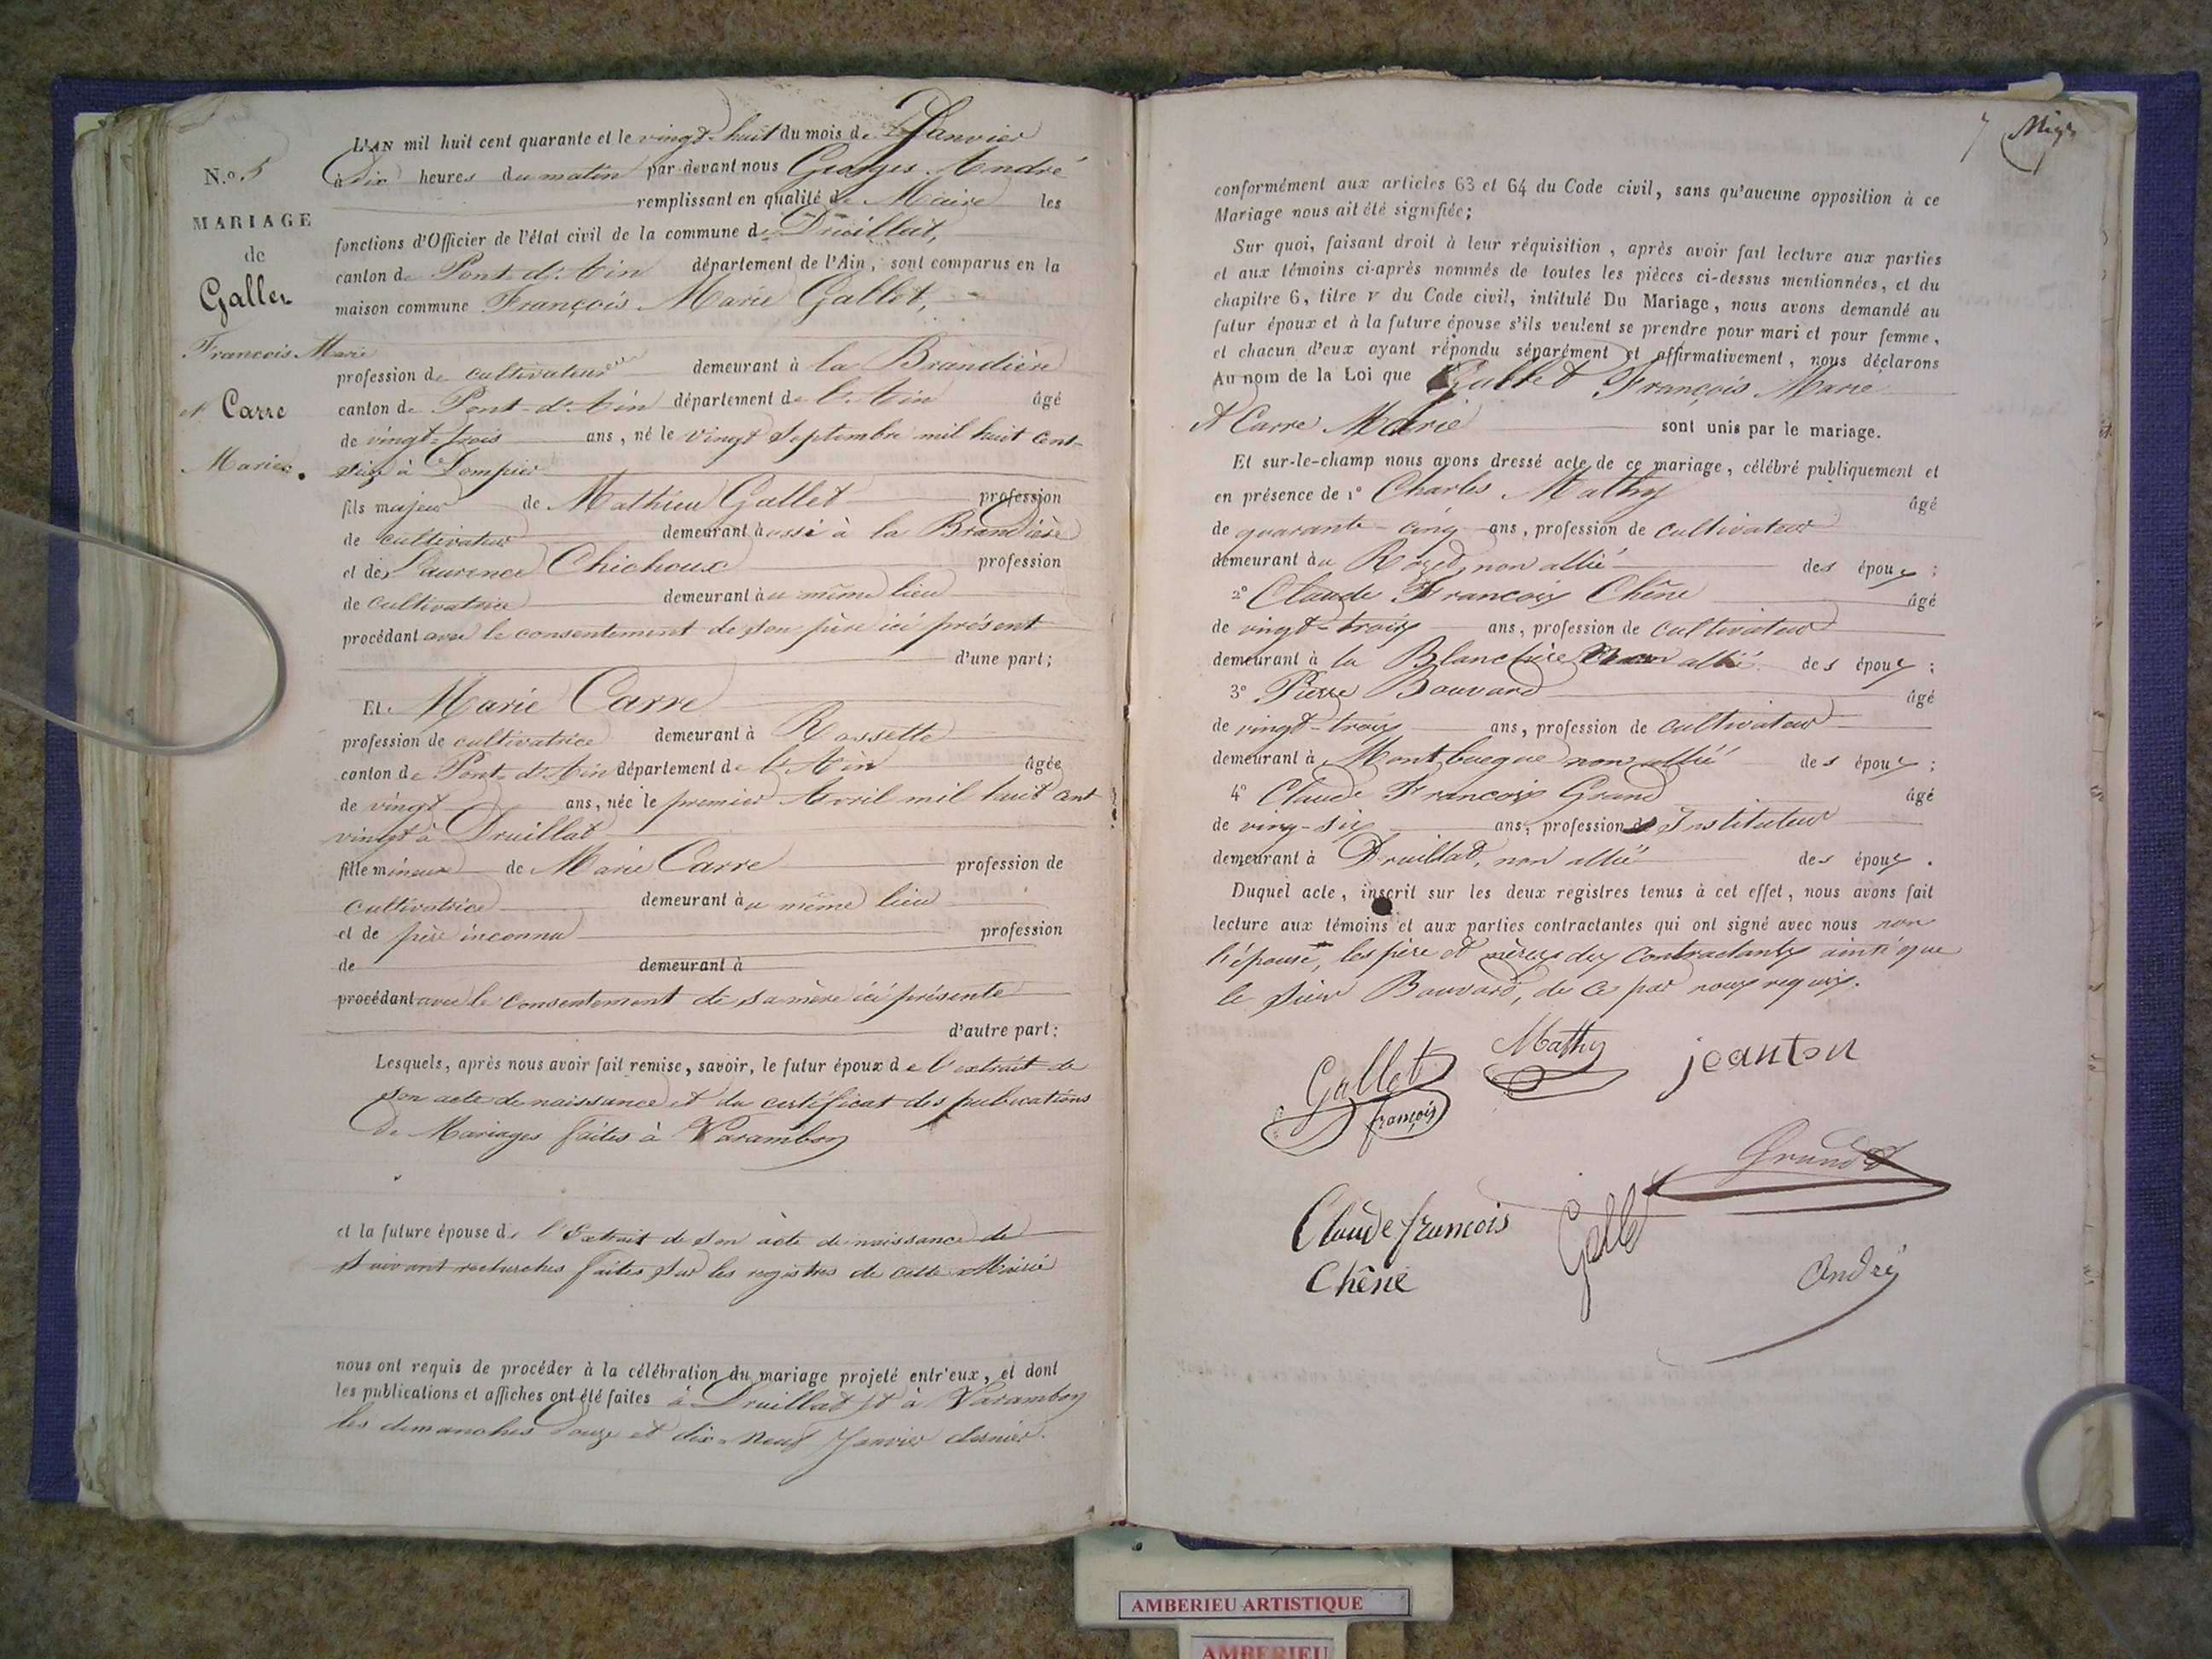 N.o 5
MARIAGE
de
Gallet
François Marie
et Carre
Marie.
L'AN mil huit cent quarante et le vingt-huit du mois de Janvier
à dix heures du matin par-devant nous Georges André
remplissant en qualité de Maire les
fonctions d'Officier de l'état civil de la commune de Druillat,
canton de Pont-d'Ain département de l'Ain, sont comparus en la
maison commune François Marie Gallet,
profession de cultivateur demeurant à la Brandière
canton de Pont-d'Ain département de l'Ain âgé
de vingt-trois ans, né le vingt Septembre mil huit cent
seize à Dompier
fils majeur de Mathieu Gallet profession
de cultivateur demeurant aussi à la Brandière
et de Laurence Chichoux profession
de cultivatrice demeurant au même lieu
procédant avec le consentement de son père ici présent
d'une part;
Et Marie Carre
profession de cultivatrice demeurant à Rossette
canton de Pont d'Ain département de l'Ain âgée
de vingt ans, née le premier Avril mil huit cent
vingt à Druillat
fille mineure de Marie Carre profession de
cultivatrice demeurant au même lieu
et de père inconnu profession
de demeurant à
procédant avec le consentement de sa mère ici présente
d'autre part:
Lesquels, après nous avoir fait remise, savoir, le futur époux de l'extrait de
son acte de naissance et du certificat des publications
de Mariages faites à Varambon
et la future épouse de l'Extrait de son acte de naissance de
suivant recherches faites sur les registres de cette Mairie
nous ont requis de procéder à la célébration du mariage projeté entr'eux, et dont
les publications et affiches ont été faites à Druillat et à Varambon
les dimanches Douze et dix-neuf Janvier dernier.
7
conformément aux articles 63 et 64 du Code civil, sans qu'aucune opposition à ce
Mariage nous ait été signifiée;
Sur quoi, faisant droit à leur réquisition, après avoir fait lecture aux parties
et aux témoins ci-après nommés de toutes les pièces ci-dessus mentionnées, et du
chapitre 6, titre V du Code civil, intitulé Du Mariage, nous avons demandé au
futur époux et à la future épouse s'ils veulent se prendre pour mari et pour femme,
et chacun d'eux ayant répondu séparément et affirmativement, nous déclarons
Au nom de la Loi que Gallet François Marie
et Carre Marie sont unis par le mariage.
Et sur-le-champ nous avons dressé acte de ce mariage, célébré publiquement et
en présence de 1o Charles Mathy âgé
de quarante-cinq ans, profession de cultivateur
demeurant au non allié des époux;
2o Claude François Chêne âgé
de vingt-trois ans, profession de cultivateur
demeurant à la Blanchère non allié des époux;
3o Pierre Bouvard âgé
de vingt-trois ans, profession de cultivateur
demeurant à non allié des époux;
4o Claude François Grand âgé
de ving-six ans, profession d Instituteur
demeurant à Druillat, non allié des époux.
Duquel acte, inscrit sur les deux registres tenus à cet effet, nous avons fait
lecture aux témoins et aux parties contractantes qui ont signé avec nous non
l'épouse, les père et mères des Contractants ainsi que
le sieur Bouvard, de ce par nous requis.
Gallet Mathy jeanton
françois
Grand
Claude francois Galle
Chêne André
AMBERIEU ARTISTIQUE
AMBERIEU